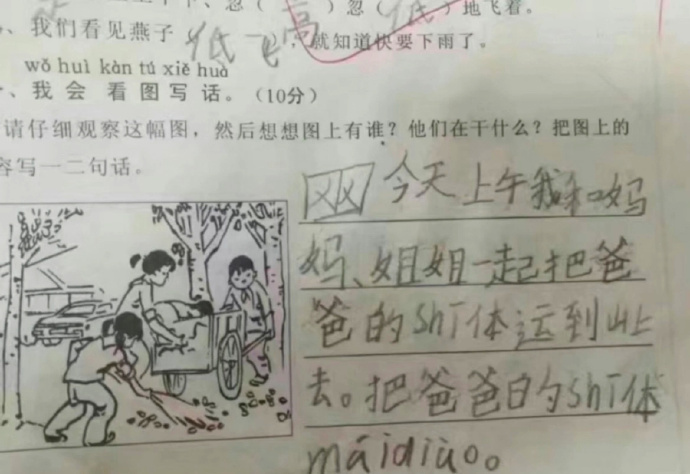 忽(高)忽(低)地飞着。
、我们看见燕子低飞,就知道快要下雨了。
wǒ huì kàn tú xiě huà
、我会看图写话。(10分)
请仔细观察这幅图,然后想想图上有谁?他们在干什么?把图上的
容写一二句话。
今天上午我和妈
妈、姐姐一起把爸
爸的shī体运到山上
去。把爸爸的shī体
máidiào。